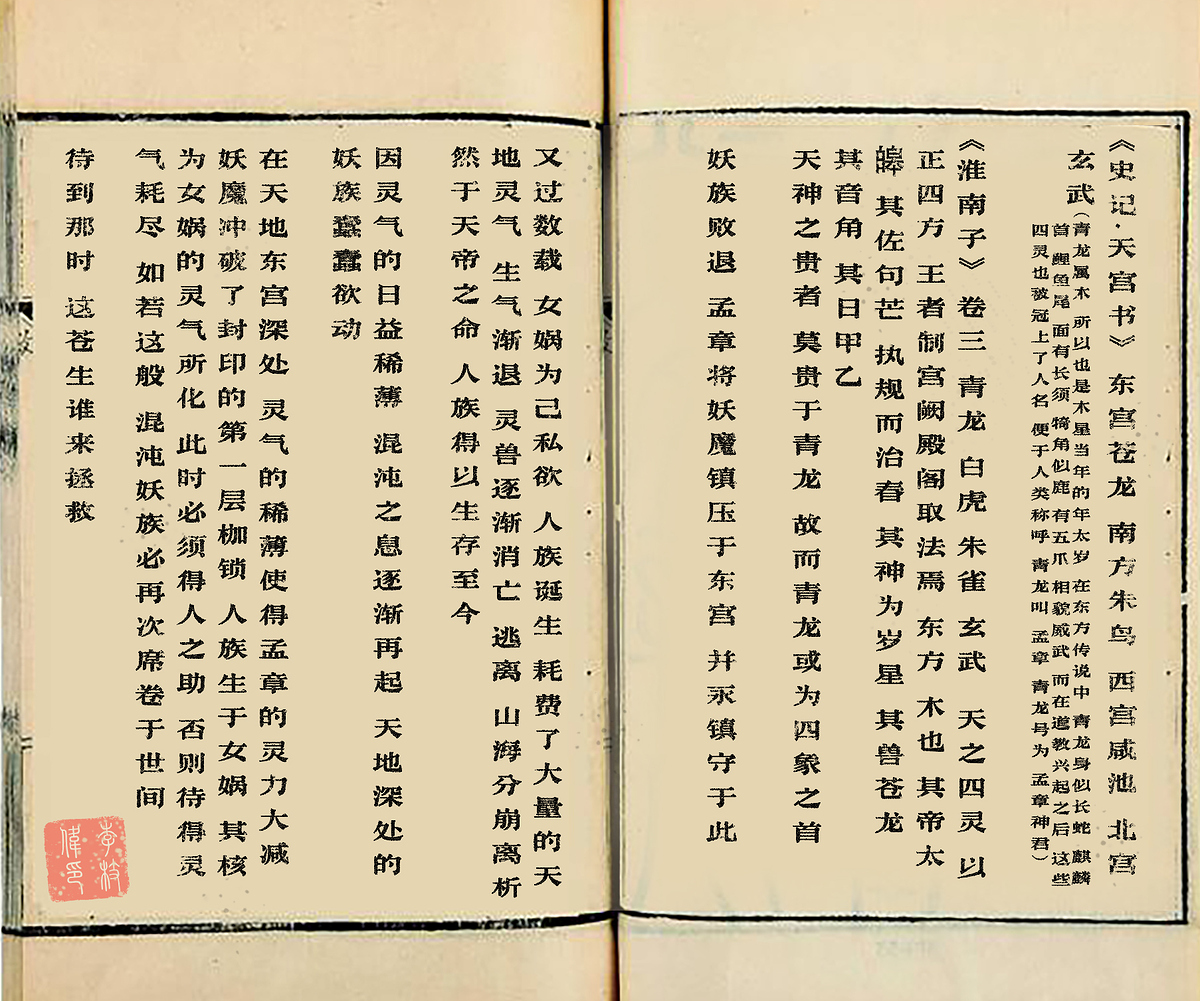 《史记·天宫书》 东宫苍龙 南方朱鸟 西宫咸池 北宫
玄武(青龙属木 所以也是木星当年的年太岁 在东方传说中 青龙身似长蛇 麒麟
首 鲤鱼尾 面有长须 犄角似鹿 有五爪 相貌威武 而在道教兴起之后 这些
四灵也被冠上了人名 便于人类称呼 青龙叫 孟章 青龙号为 孟章神君)
《淮南子》 卷三 青龙 白虎 朱雀 玄武 天之四灵 以
正四方 王者制宫阙殿阁取法焉 东方 木也 其帝太
皞 其佐句芒 执规而治春 其神为岁星 其兽苍龙
其音角 其日甲乙
天神之贵者 莫贵于青龙 故而青龙或为四象之首
妖族败退 孟章将妖魔镇压于东宫 并永镇守于此
又过数载 女娲为己私欲 人族诞生 耗费了大量的天
地灵气 生气渐退 灵兽逐渐消亡 逃离 山海分崩离析
然于天帝之命 人族得以生存至今
因灵气的日益稀薄 混沌之息逐渐再起 天地深处的
妖族蠢蠢欲动
在天地东宫深处 灵气的稀薄使得孟章的灵力大减
妖魔冲破了封印的第一层枷锁 人族生于女娲 其核
为女娲的灵气所化 此时必须得人之助 否则待得灵
气耗尽 如若这般 混沌妖族必再次席卷于世间
待到那时 这苍生谁来拯救
李枝
偉印